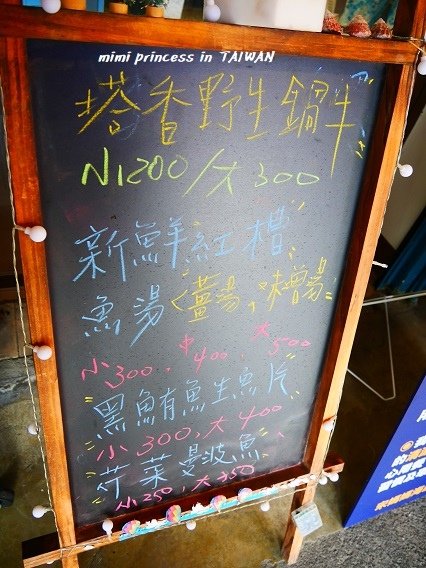 mimi princess in TAIWAN
塔香野生鍋牛
小200/大300
新鮮紅槽
魚湯<薑湯,味增湯>
小300,中400,大500
黑鮪魚生魚片
小300,大400
芹菜曼波魚
小250,大350